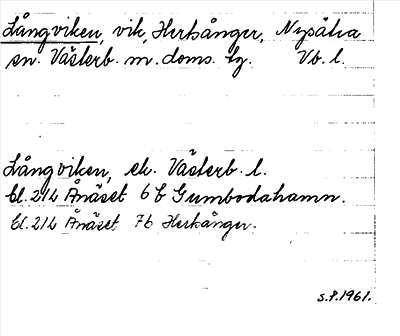 Långviken, vik, Herrsånger, Nysätra
sn. Västerb. m. doms. hg. Vb. l.
Långviken, ek. Västerb. l.
bl. 21L Ånäset 6b Gumbodahamn.
bl. 21L Ånäset 7b Herrsånger.
S.P.1961.